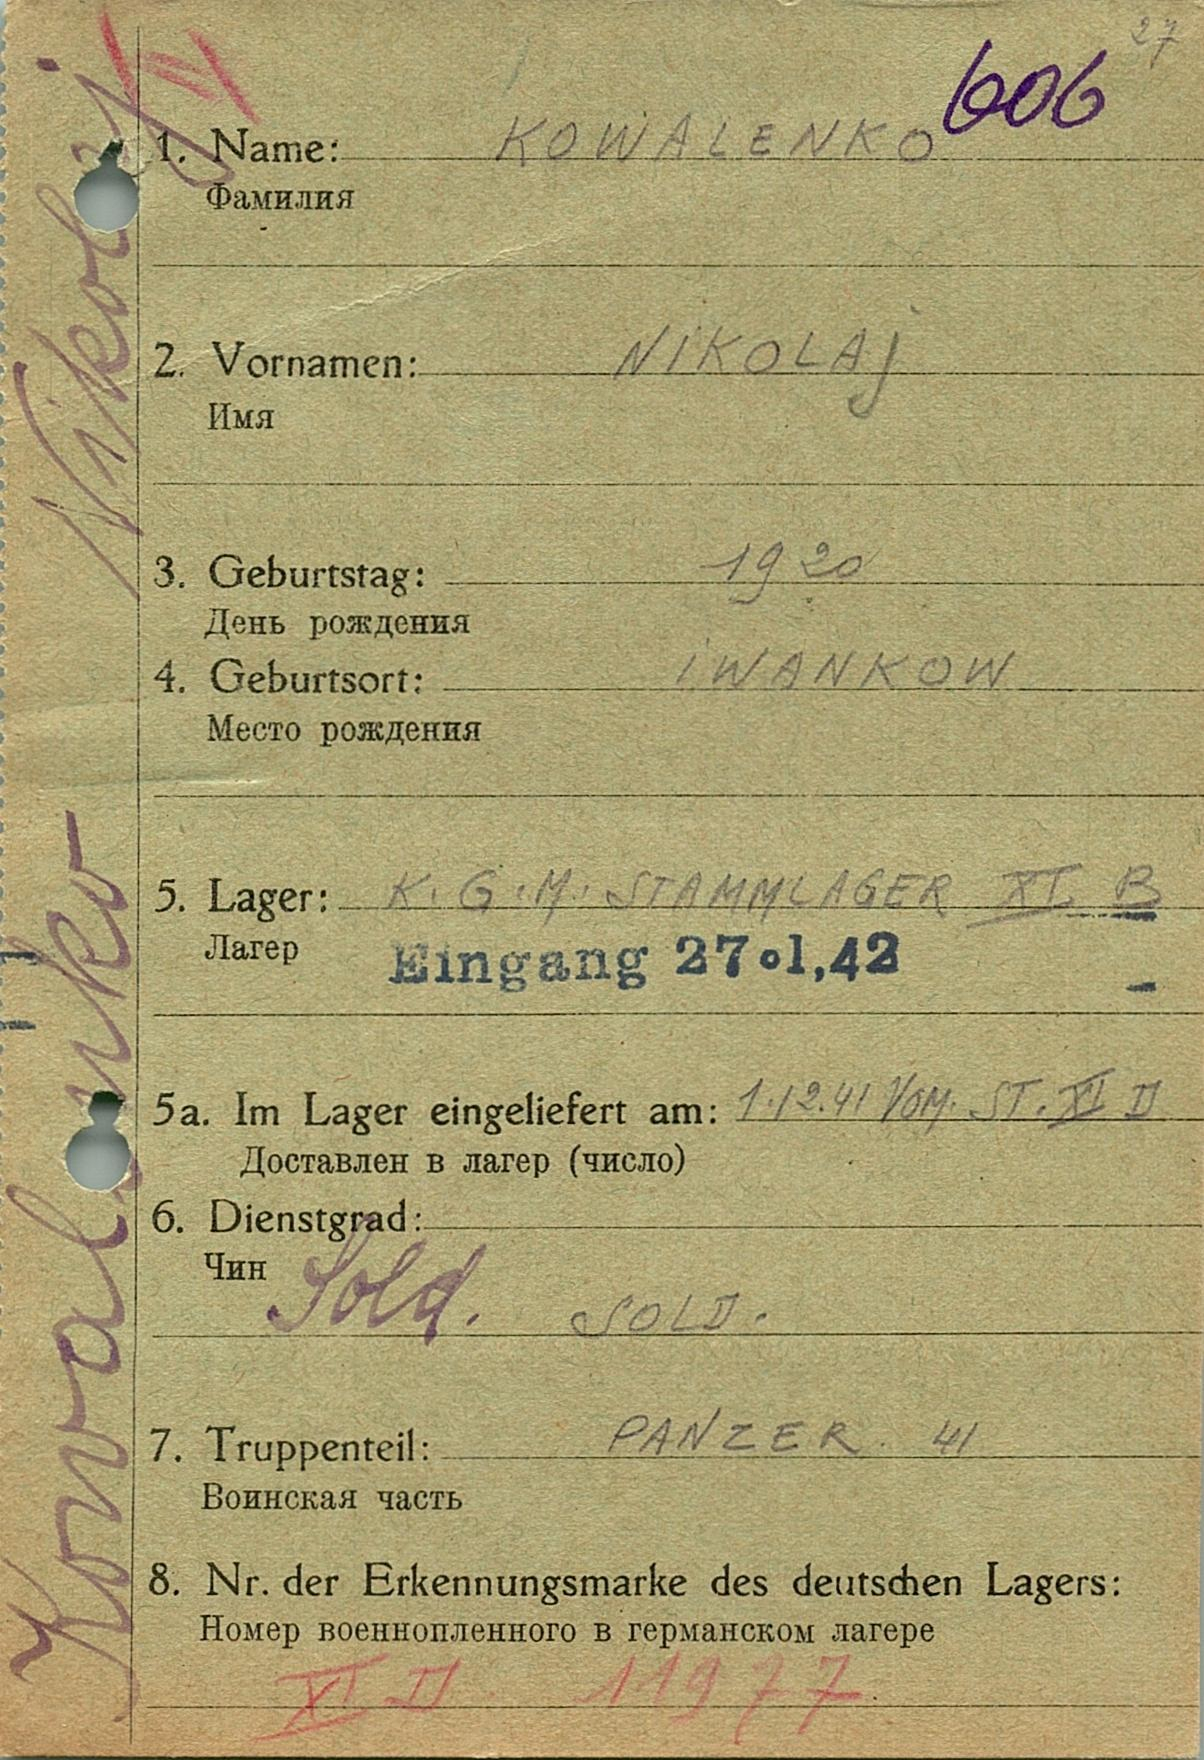 27
606
1. Name: KOWALENKO
Фамилия
2. Vornamen: NIKOLAj
Имя
3. Geburtstag: 1920
День рождения
4. Geburtsort: iWANKOW
Место рождения
5. Lager: K. G. M. STAMMLAGER XI B
Лагер
Eingang 27.1.42
5a. Im Lager eingeliefert am: 1.12.41 VOM. ST. XI D
Доставлен в лагер (число)
6. Dienstgrad:
Чин
Sold. SOLD.
7. Truppenteil: PANZER. 41
Воинская часть
8. Nr. der Erkennungsmarke des deutschen Lagers:
Номер военнопленного в германском лагере
XI D. 11977
Kowalenko Nikolaj